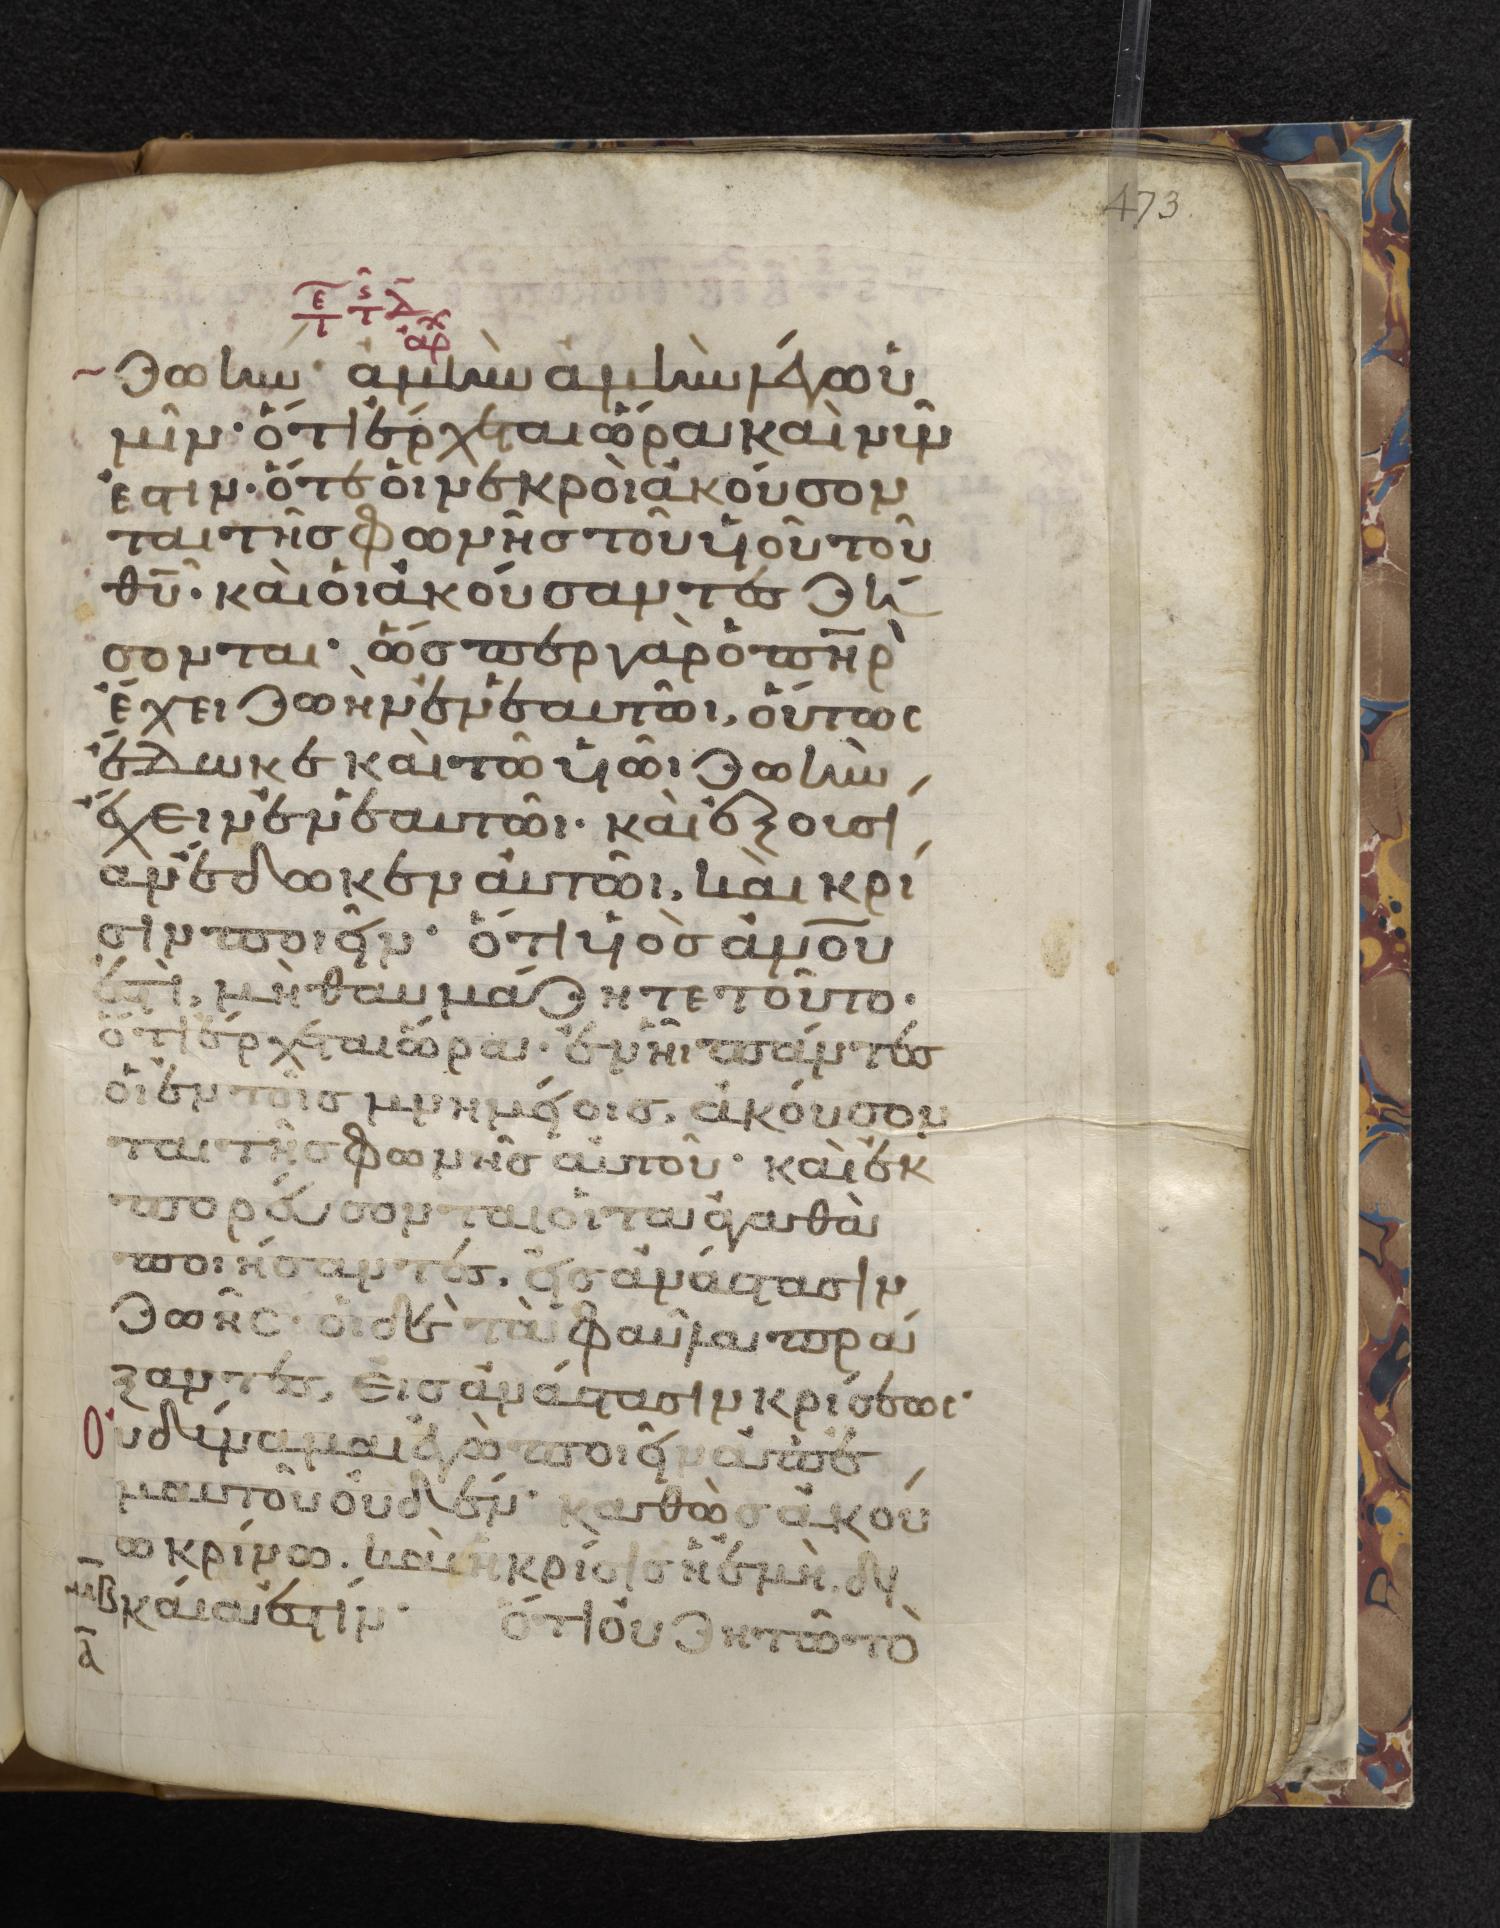 473
ζωήν· ἀμὴν ἀμὴν λέγω ὑ
μῖν· ὅτι ἔρχεται ὥρα καὶ νῦν
ἐστιν· ὅτε οἱ νεκροὶ ἀκούσον
ται τῆς φωνῆς τοῦ υἱοῦ τοῦ
θῦ· καὶ οἱ ἀκούσαντες ζή
σονται· ὥσπερ γὰρ ὁ πηρ
ἔχει ζωὴν ἐν ἑαυτῶι, οὕτως
ἔδωκε καὶ τῶ υἱῶι ζωὴν
ἔχειν ἐν ἑαυτῶι· καὶ ἐξουσί
αν ἔδωκεν αὐτῶι, καὶ κρί
σιν ποιεῖν· ὅτι υἱὸς ανου
ἐστὶ, μὴ θαυμάζητε τοῦτο·
ὅτι ἔρχεται ὥρα· ἐν ἧι πάντες
οἱ ἐν τοῖς μνημείοις, ἀκούσον
ται τῆς φωνῆς αὐτοῦ· καὶ ἐκ
πορεύσονται οἱ τὰ ἀγαθὰ
ποιήσαντες, εἰς ἀνάστασιν
ζωῆς· οἱ δὲ τὰ φαῦλα πρά
ξαντες, εἰς ἀνάστασιν κρίσεως·
Οὐ δύναμαι ἐγὼ ποιεῖν ἀπ' ἐ
μαυτοῦ οὐδέν· καθὼς ἀκού
ω κρίνω. καὶ ἡ κρίσις ἡ ἐμὴ, δι
μβ κάια ἐστίν· ὅτι οὐ ζητῶ τὸ
α